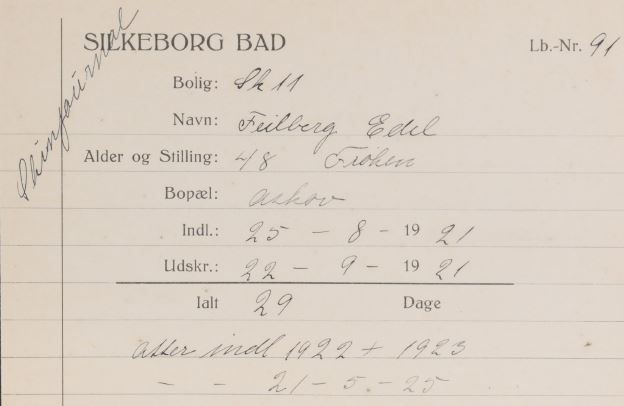 SILKEBORG BAD
Lb.-Nr. 91
Bolig: Sk 11
Navn: Feilberg Edel
Alder og Stilling: 48 Frøken
Bopæl: Askov
Indl.: 25 - 8 - 19 21
Udskr.: 22 - 9 - 19 21
Ialt 29 Dage
atter indl 1922 + 1923
- - 21 - 5. - 25